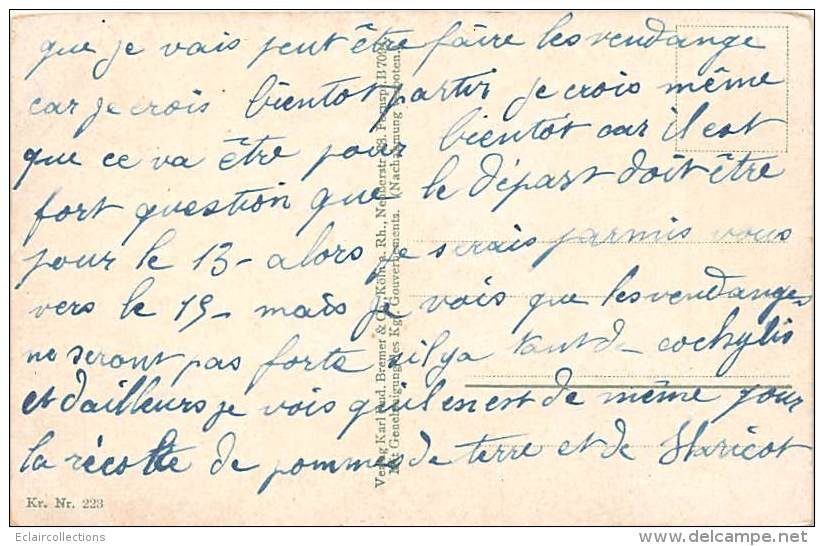 que je vais peut être faire les vendange
car je crois bientot partir je crois même
que ce va être pour bientôt car il est
fort question que le départ doit être
pour le 13 - alors je serais parmis vous
vers le 15 - mais je vois que les vendanges
ne seront pas forte il ya tant de cochylis
et d'ailleurs je vois qu'il en est de même pour
la récolte de pommes de terre et de Haricot
Verlag Karl Rud. Bremer & Co., Köln a. Rh.,
Mit Genehmigung des Kgl. Gouvernements. (Nachahmung verboten.)
Kr. Nr. 223
Eclaircollections
delcampe.net